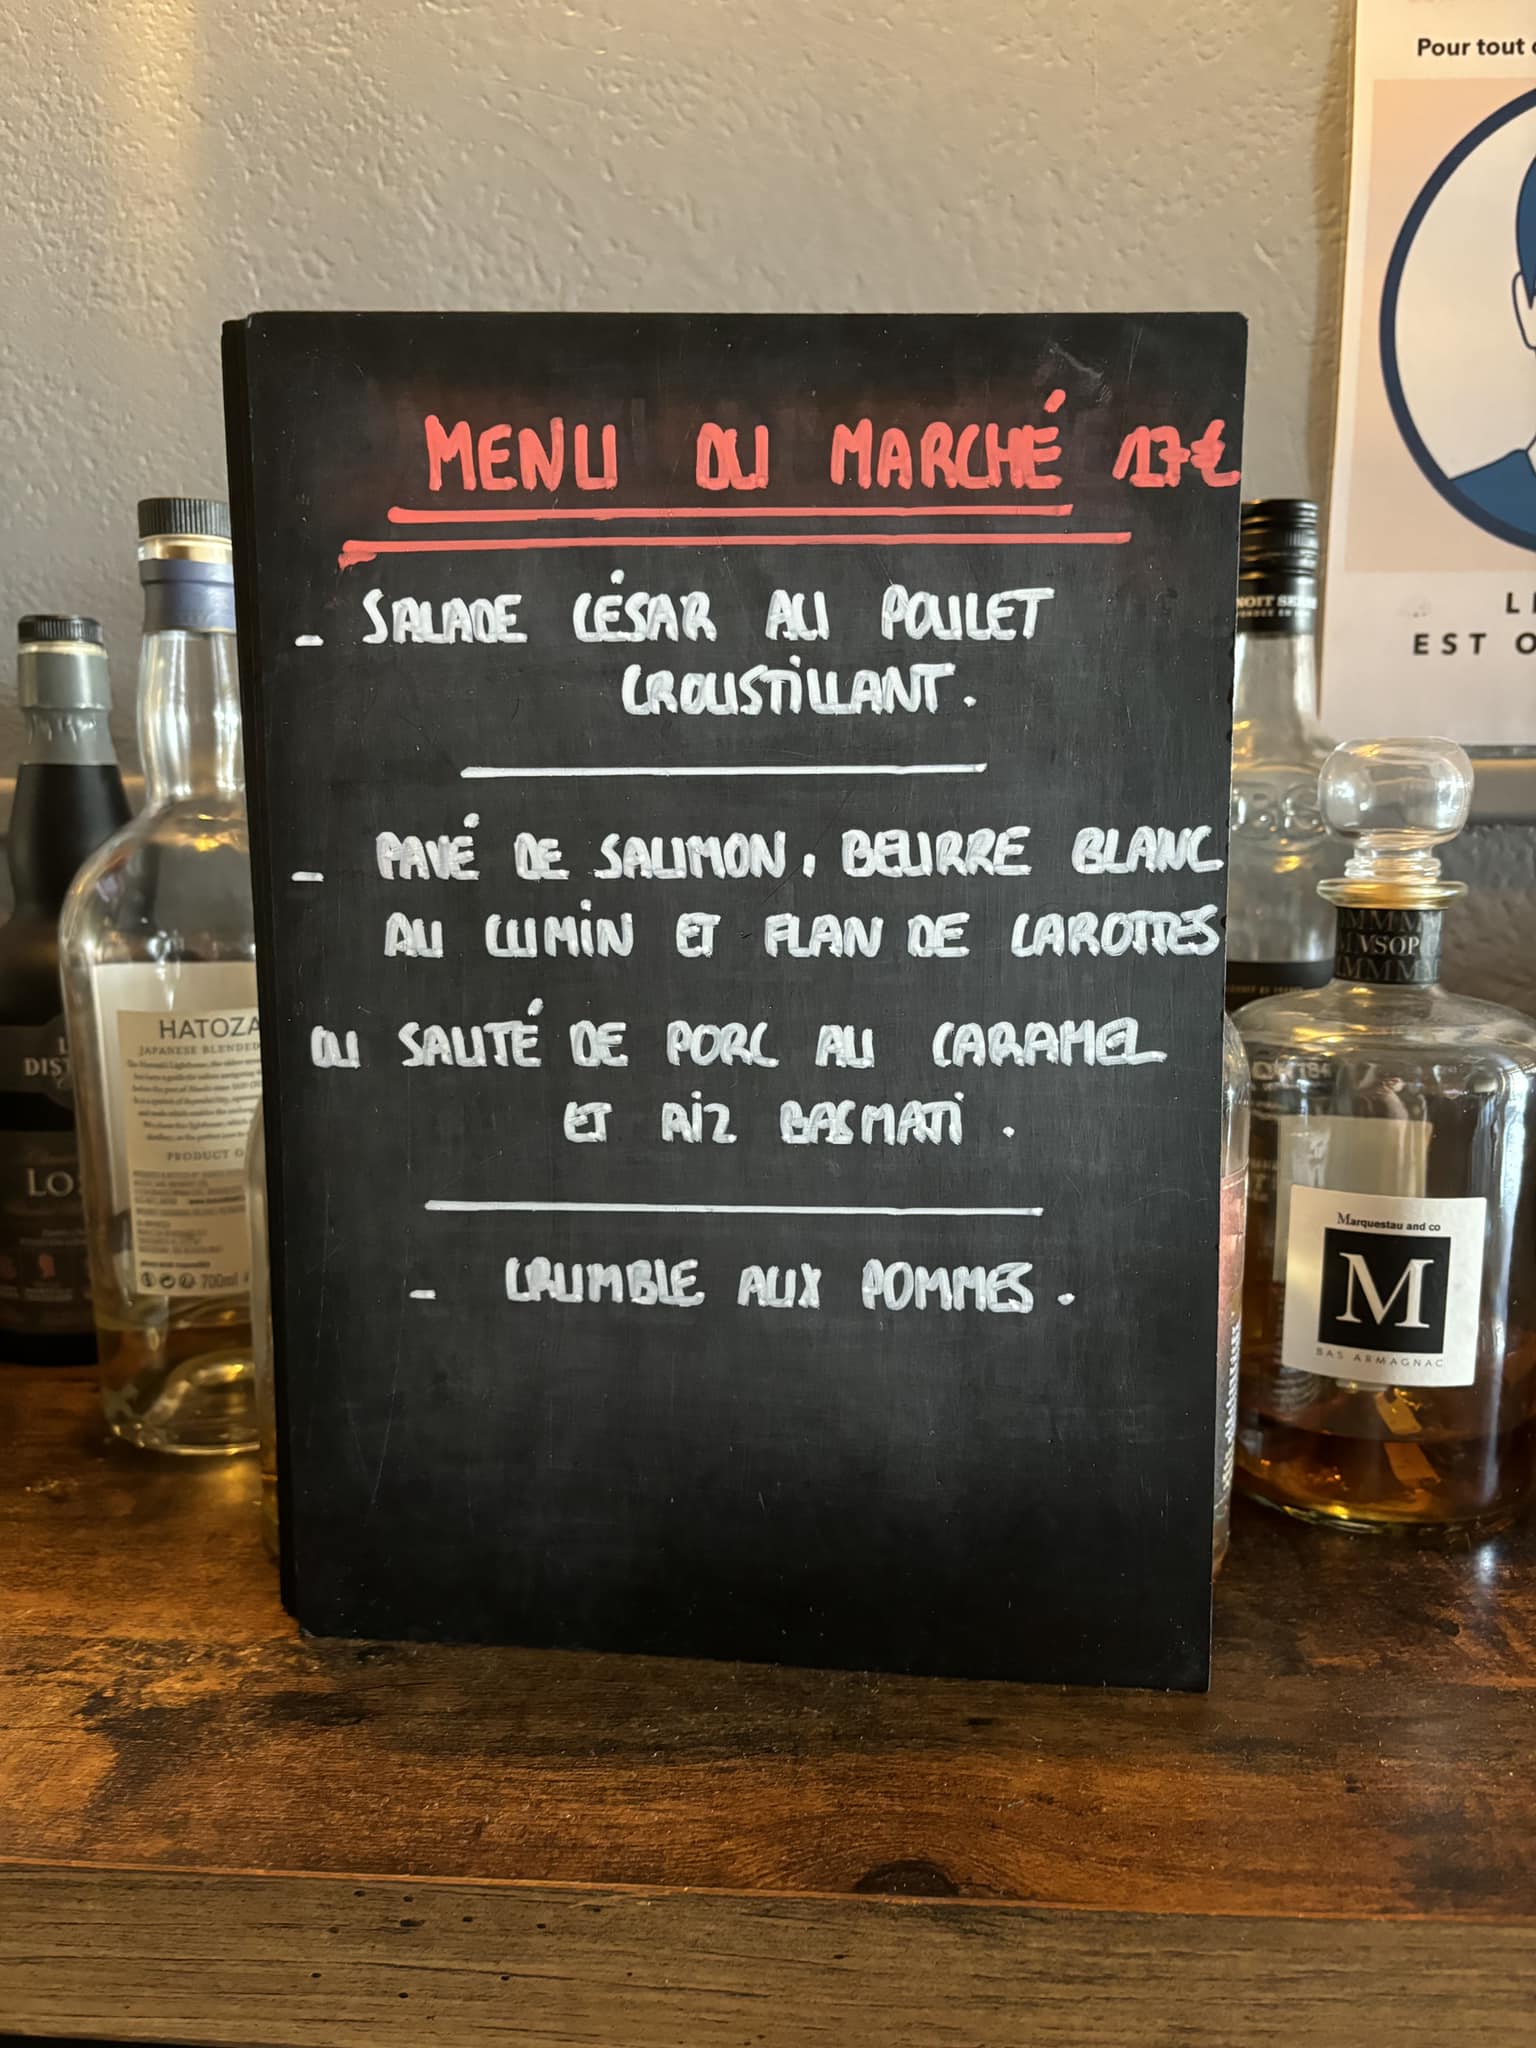 Pour tout
MENU DU MARCHÉ 17€
- SALADE CÉSAR AU POULET
CROUSTILLANT.
- PAVÉ DE SAUMON, BEURRE BLANC
AU CUMIN ET FLAN DE CAROTTES
OU SAUTÉ DE PORC AU CARAMEL
ET RIZ BASMATI.
- CRUMBLE AUX POMMES.
HATOZA
JAPANESE BLENDED
PRODUCT O
700ml
DIST
LO
EST O
VSOP
Marquestau and co
M
BAS ARMAGNAC